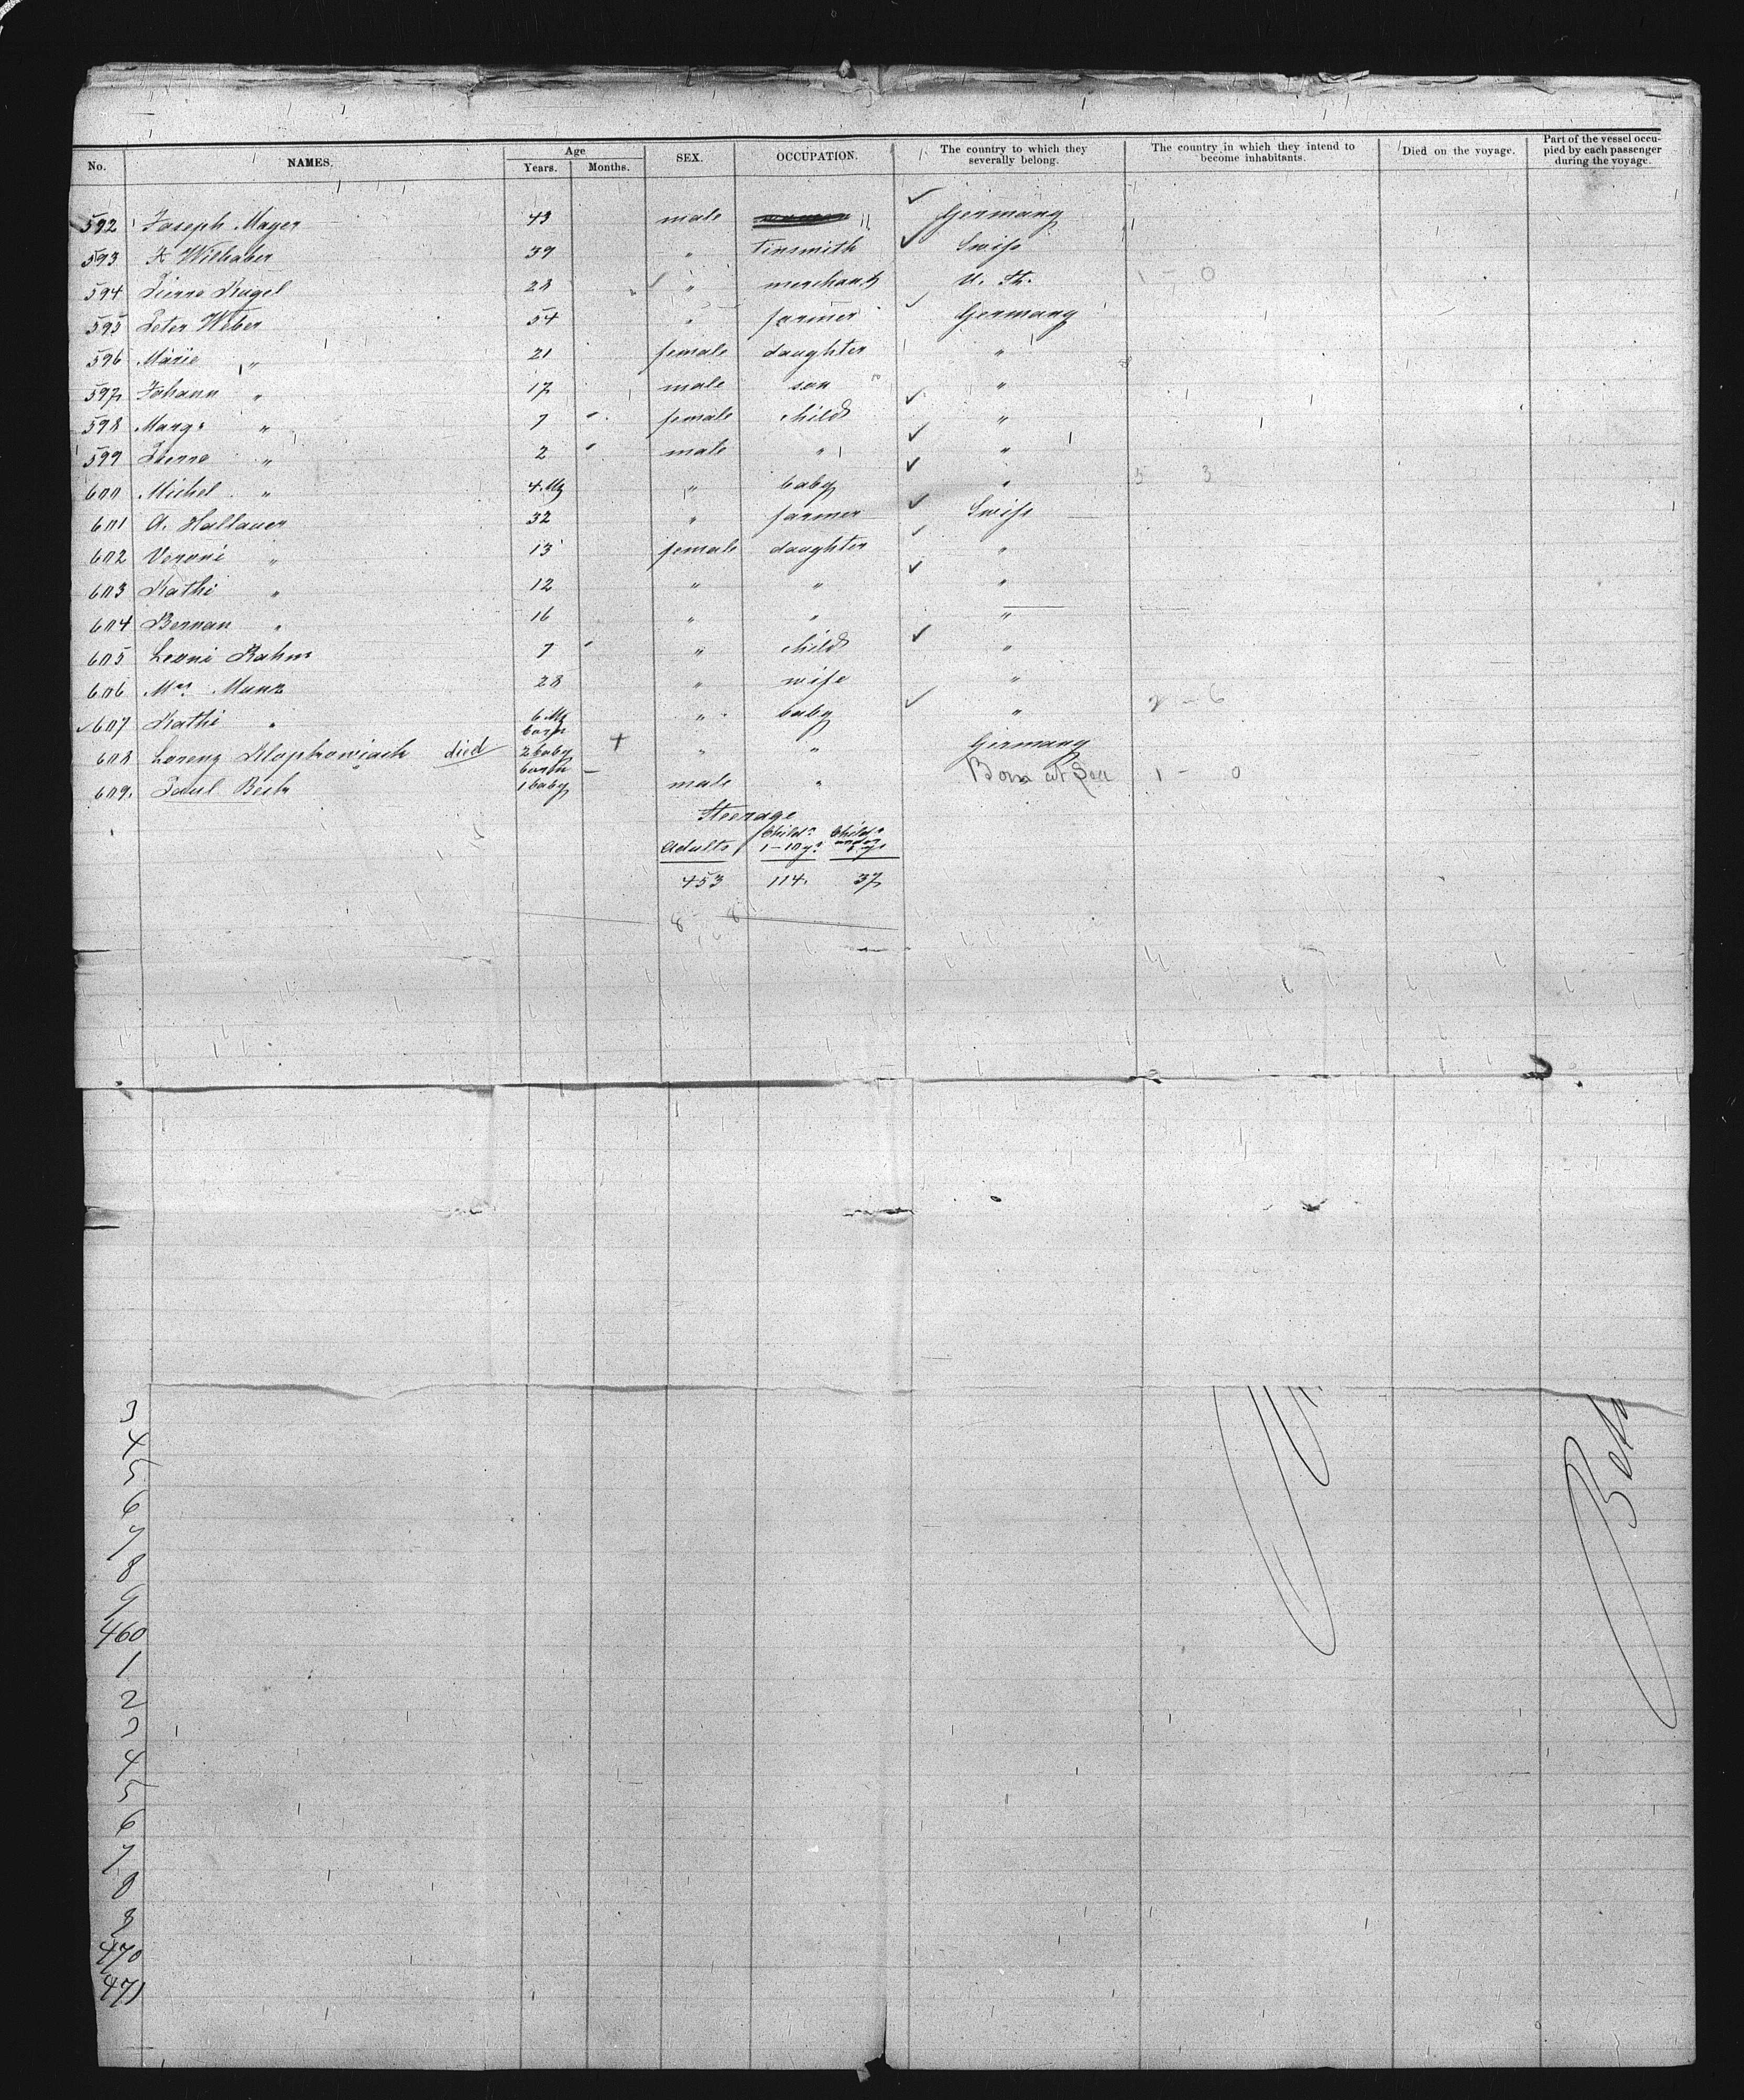 No. NAMES. Age Years. Months. SEX. OCCUPATION. The country to which they severally belong. The country in which they intend to become inhabitants. Died on the voyage. Part of the vessel occupied by each passenger during the voyage.
592 Joseph Mayer 43 male Germany
593 Wilhaber 39 " tinsmith Swiss
594 Pierre Kugel 28 " merchant U. St. 1 - 0
595 Peter Weber 54 " farmer Germany
596 Marie " 21 female daughter "
597 Johann " 17 male son "
598 Margt " 7 female child "
599 Pierre " 2 male " "
600 Michel " 4 M. " baby " 5 3
601 A. Hallauer 32 " farmer Swiss
602 Veroni " 13 female daughter "
603 Kathi " 12 " " "
604 " 16 " " "
605 Leoni Rahm 7 " child "
606 Mrs Munz 28 " wife "
607 Kathi " 6 M. " baby " 2 - 6
608 Lorenz died 2 baby + " " Germany
609. Paul Besh 1 baby - male " Born at Sea 1 - 0
Steerage
Adults Childn 1-10 ys Childn under 1 ys
453 114. 37
8 8
3
4
5
6
7
8
9
460
1
2
3
4
5
6
7
8
9
470
471